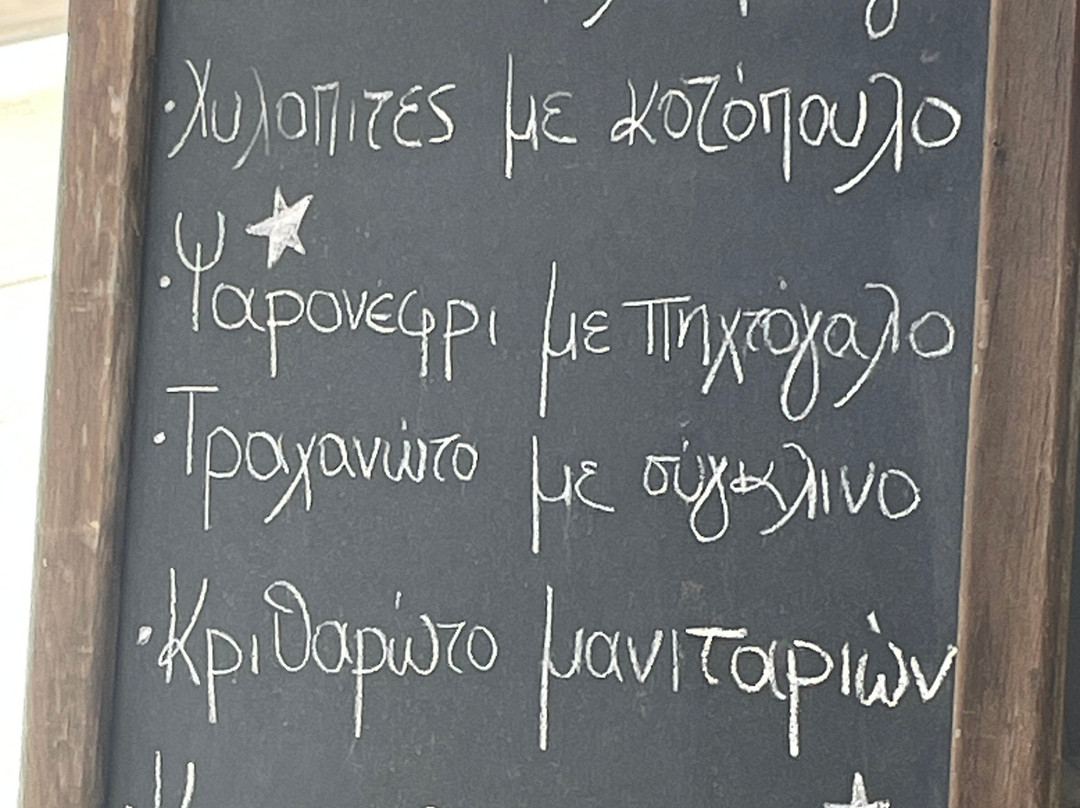 ·Χυλοπιτες με κοτόπουλο
·Ψαρονέφρι με πηχτόγαλο
·Τραχανώτο με σύγκλινο
·Κριθαρώτο μανιταριών